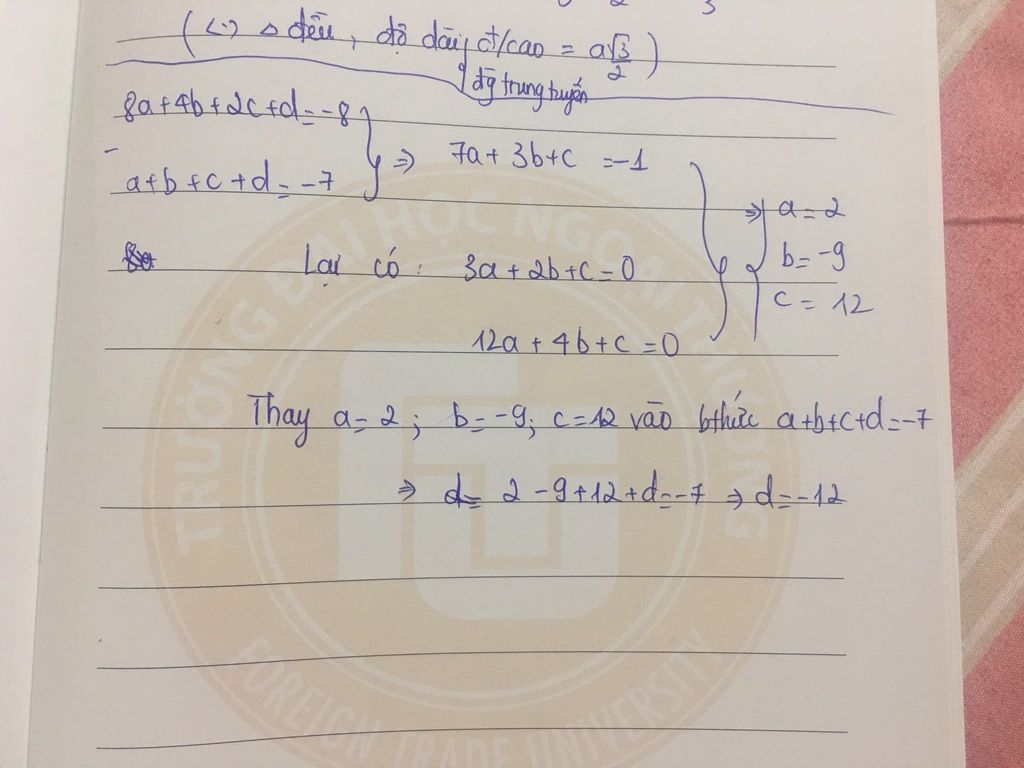 2 3
(<·) △ đều, độ dài đ/cao = a√3/2)
đg trung tuyến
8a+4b+2c+d=-8
- ⇒ 7a+3b+c =-1
a+b+c+d=-7
⇒ a=2
b=-9
Lại có: 3a+2b+c=0
c= 12
12a+4b+c=0
Thay a=2; b=-9; c=12 vào bthức a+b+c+d=-7
⇒ d= 2-9+12+d=-7 ⇒ d=-12
TRƯỜNG ĐẠI HỌC NGOẠI THƯƠNG
FOREIGN TRADE UNIVERSITY